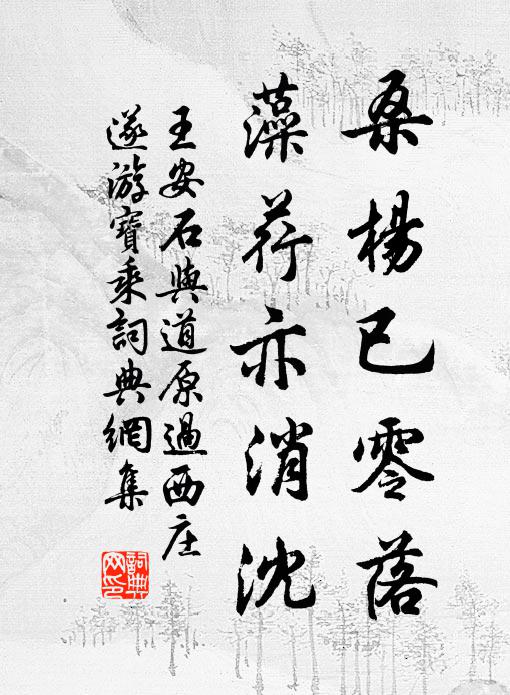 桑楊已零落
藻荇亦消沈
王安石與道原過西庄
遂游寶乘詞典網集
詞典网印